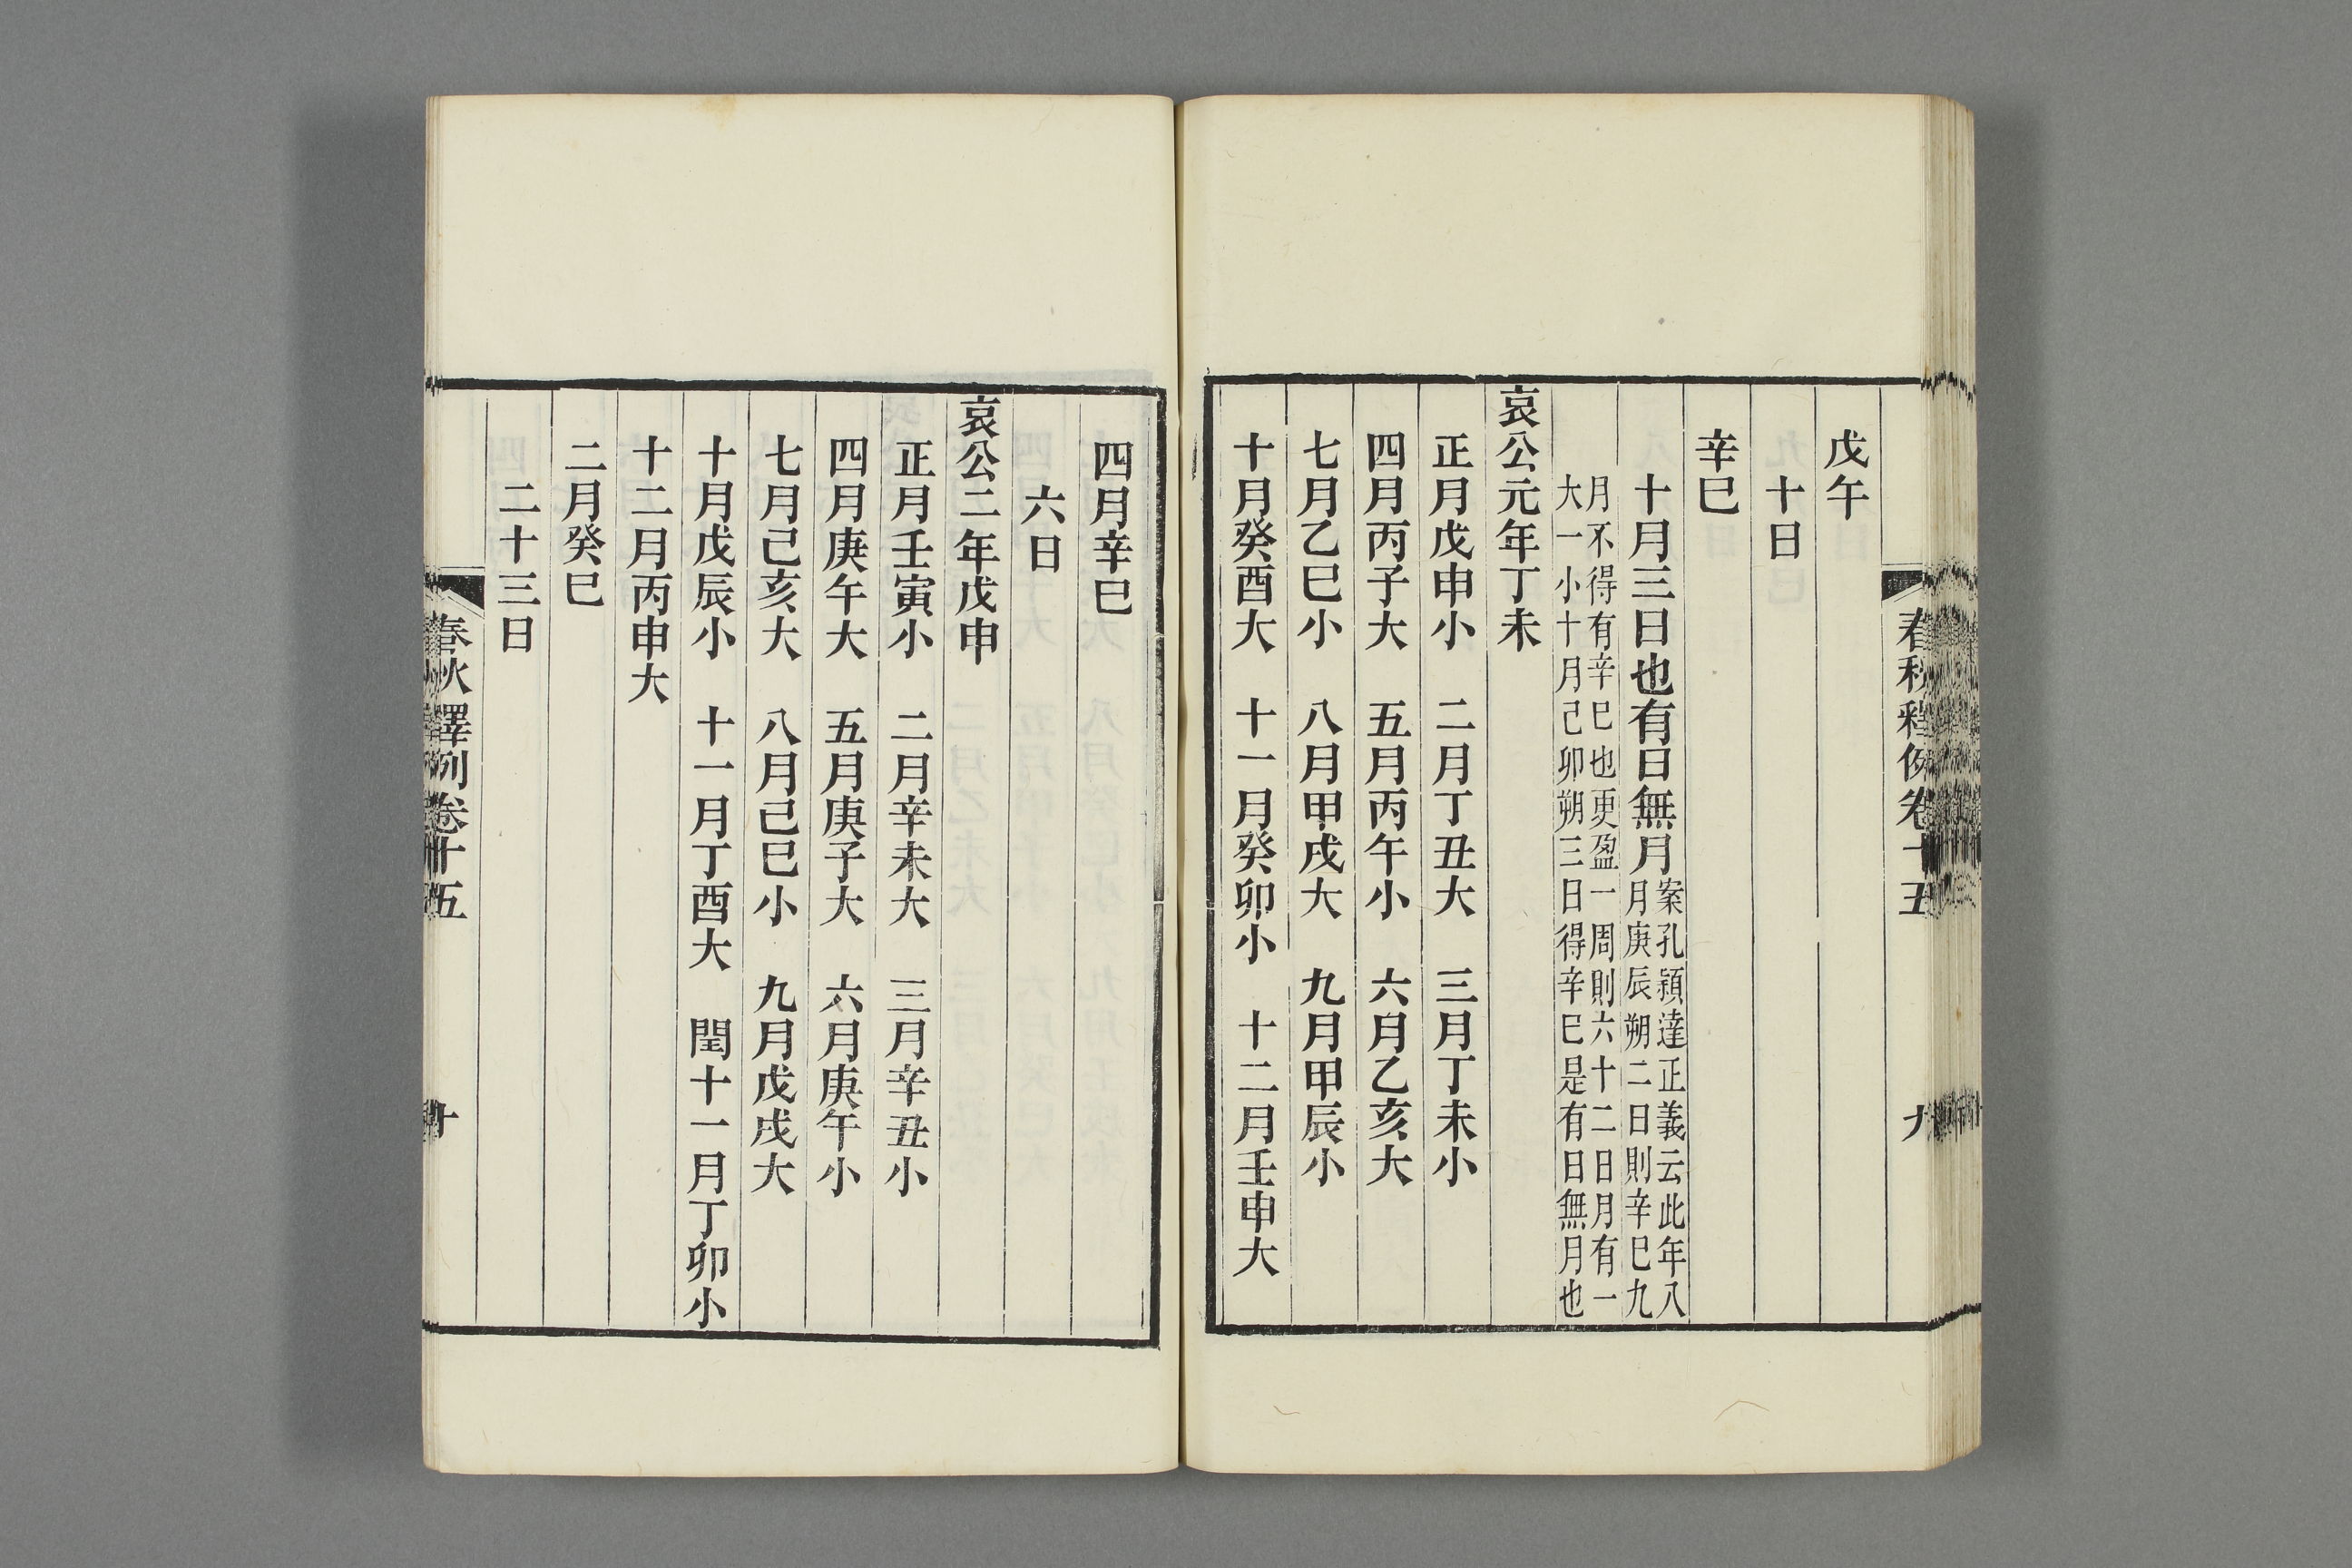 戊午
十日
辛巳
十月三日也有日無月案孔穎達正義云此年八
月庚辰朔二日則辛巳九
月不得有辛巳也更盈一周則六十二日月有一
大一小十月己卯朔三日得辛巳是有日無月也
哀公元年丁未
正月戊申小　二月丁丑大　三月丁未小
四月丙子大　五月丙午小　六月乙亥大
七月乙巳小　八月甲戌大　九月甲辰小
十月癸酉大　十一月癸卯小　十二月壬申大
春秋釋例卷十五　九
四月辛巳
六日
哀公二年戊申
正月壬寅小　二月辛未大　三月辛丑小
四月庚午大　五月庚子大　六月庚午小
七月己亥大　八月己巳小　九月戊戌大
十月戊辰小　十一月丁酉大　閏十一月丁卯小
十二月丙申大
二月癸巳
二十三日
春秋釋例卷十五　十